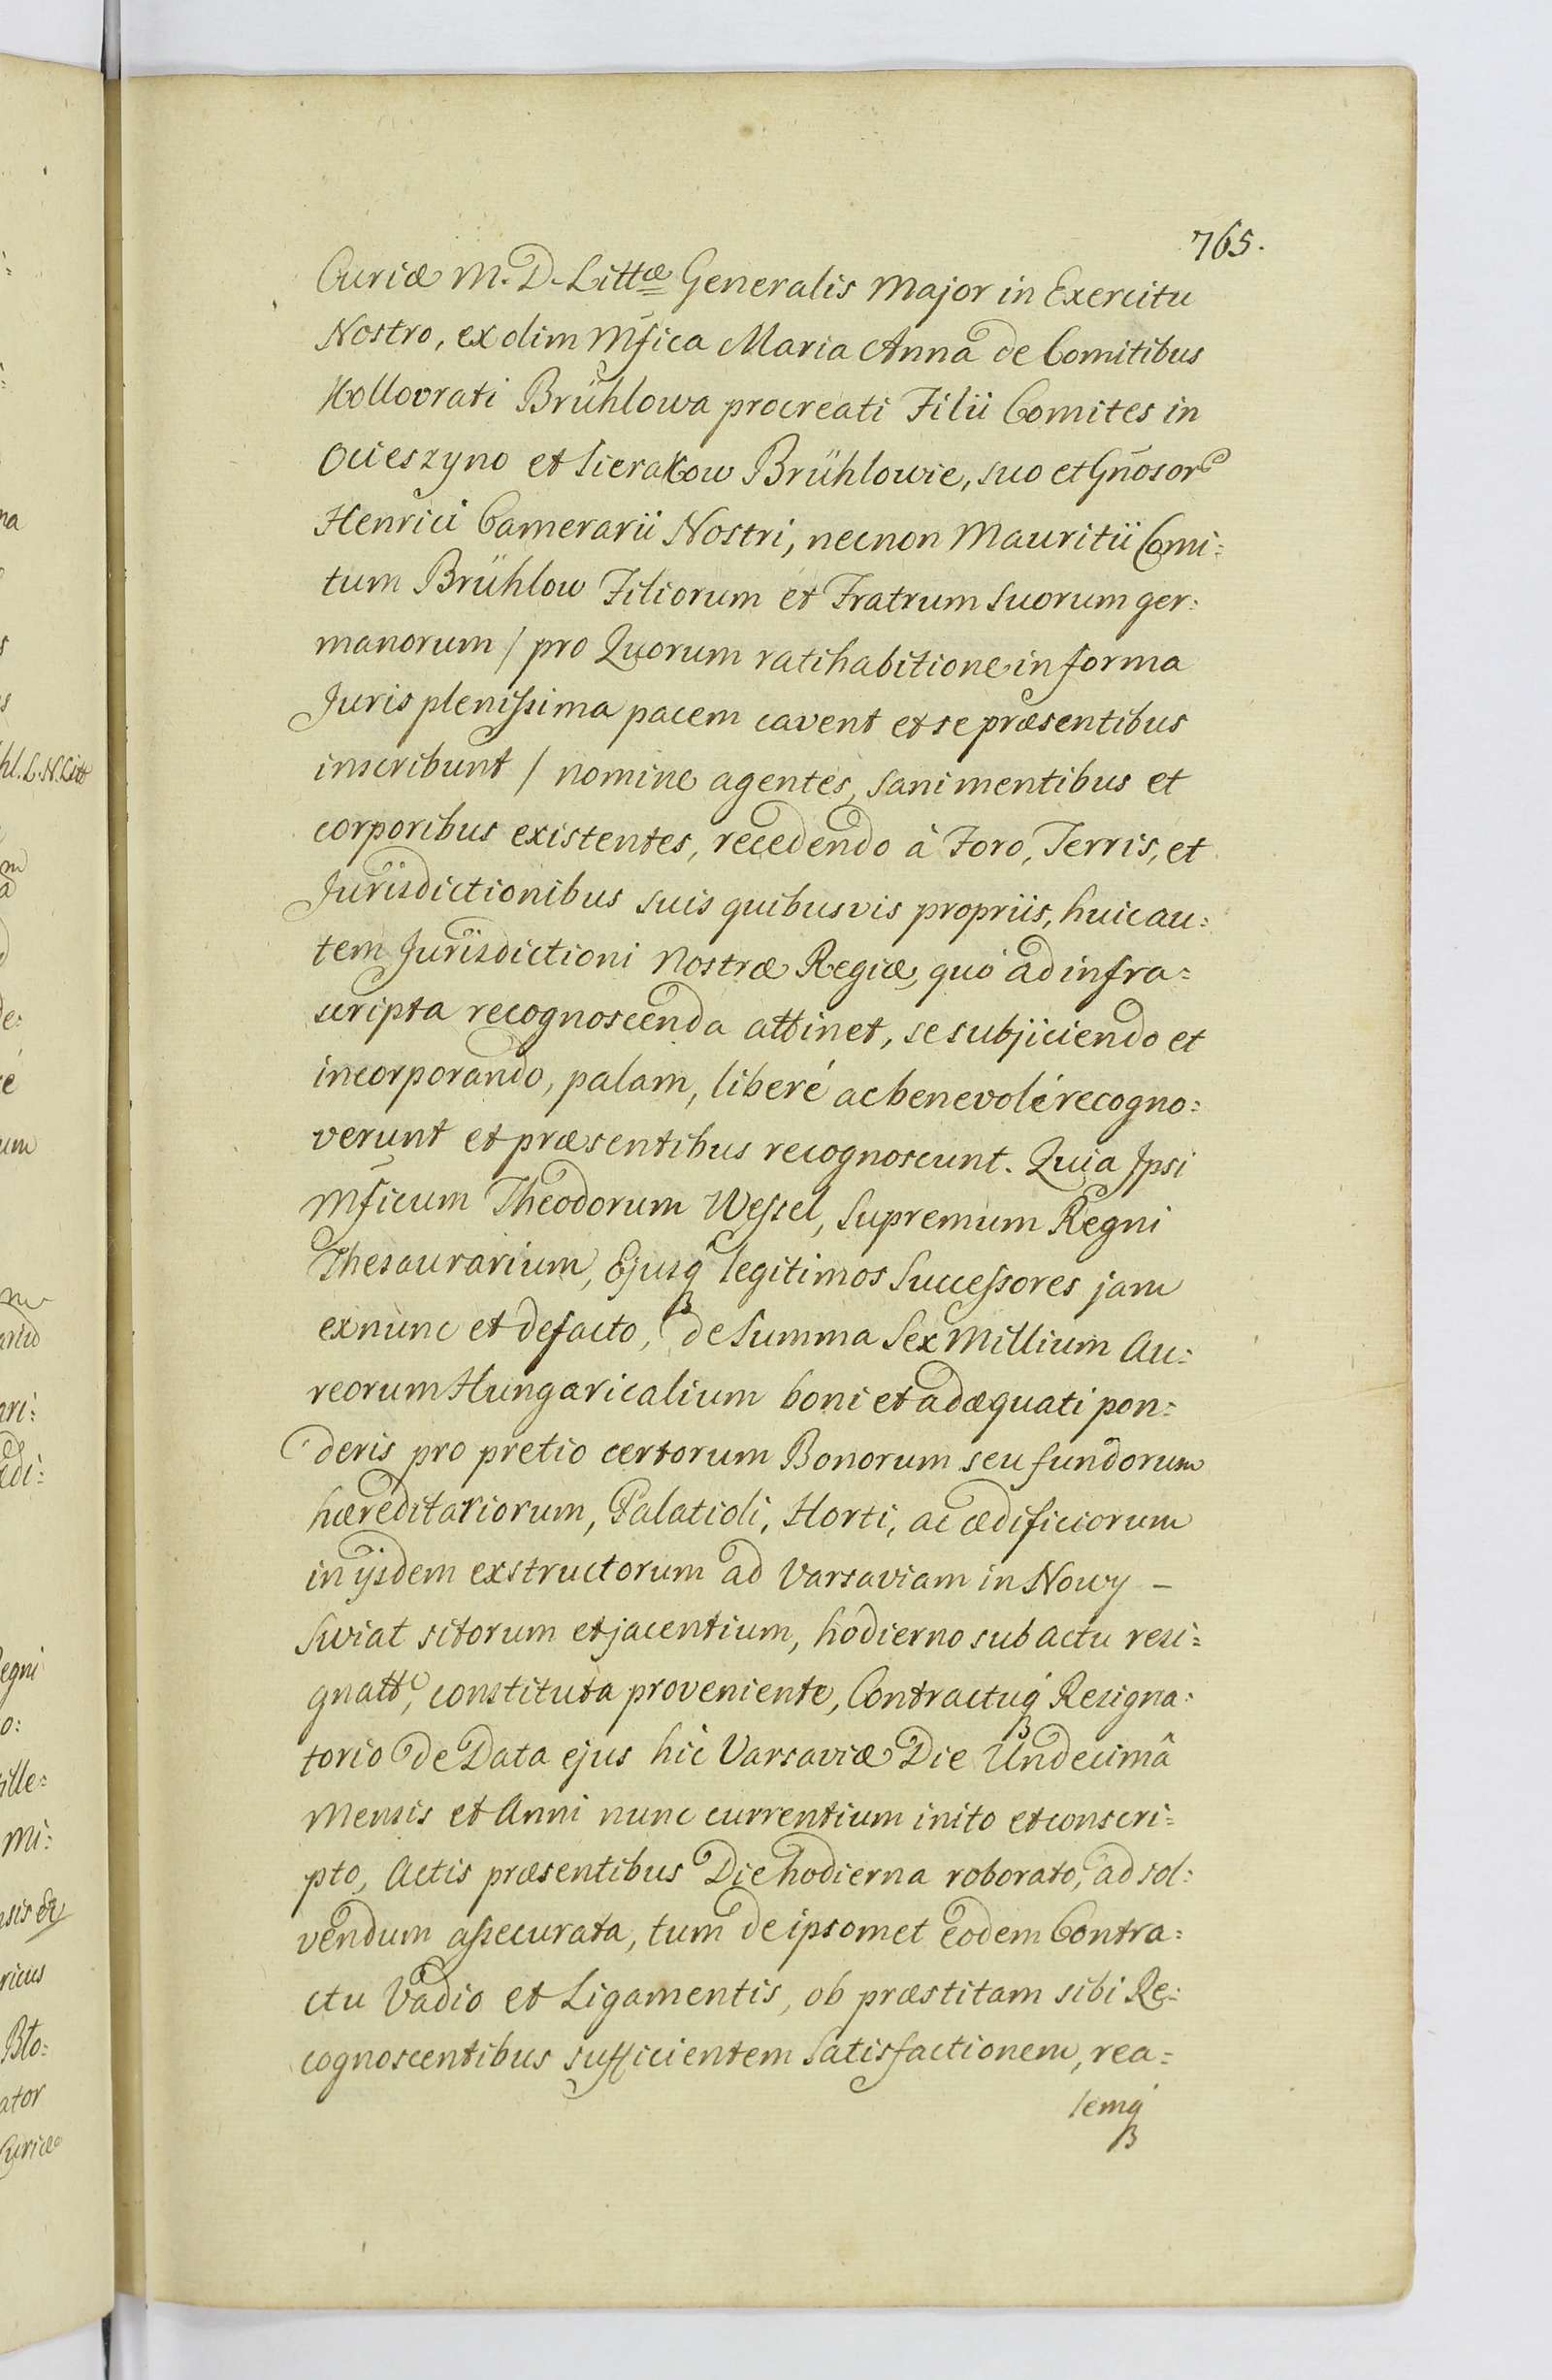 765.
Curiæ M. D. Littæ Generalis Major in Exercitu
Nostro, ex olim Mfica Maria Anna de Comitibus
Kollovrati Brühlowa procreati Filii Comites in
Ocieszyno et Sierakow Brühlowie, suo et Gnosor
Henrici Camerarii Nostri, necnon Mauritii Comi:
tum Brühlow Filiorum et Fratrum Suorum ger:
manorum / pro Quorum ratihabitione in forma
Juris plenissima pacem cavent et se præsentibus
inscribunt / nomine agentes, sani mentibus et
corporibus existentes, recedendo à Foro, Terris, et
Jurisdictionibus suis quibusvis propriis, huic au:
tem Jurisdictioni Nostræ Regiæ, quò ad infra:
scripta recognoscenda attinet, se subjiciendo et
incorporando, palam, liberé ac benevolé recogno:
verunt et præsentibus recognoscunt. Quia Ipsi
Mficum Theodorum Wessel, Supremum Regni
Thesaurarium, Ejusq legitimos Successores jam
exnunc et defacto, de Summa Sex Millium Au:
reorum Hungaricalium boni et adæquati pon:
deris pro pretio certorum Bonorum seu fundorum
hæreditariorum, Palatioli, Horti, ac ædificiorum
in ijsdem exstructorum ad Varsaviam in Nowy –
Swiat sitorum et jacentium, hodierno sub actu resi:
gnatt, constituta proveniente, Contractuq Resigna:
torio de Data ejus hic Varsaviæ Die Undecimâ
Mensis et Anni nunc currentium inito et conscri:
pto, Actis præsentibus Die hodierna roborato, ad sol:
vendum assecurata, tum de ipsomet eodem Contra:
ctu Vadio et Ligamentis, ob præstitam sibi Re:
cognoscentibus sufficientem Satisfactionem, rea:
lemq